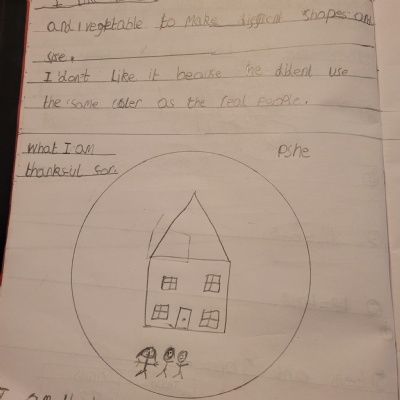 and vegetable to make different shapes and
size.
I don't like it because he dident use
the same coler as the real people.
What I am
thankful for.
Pshe